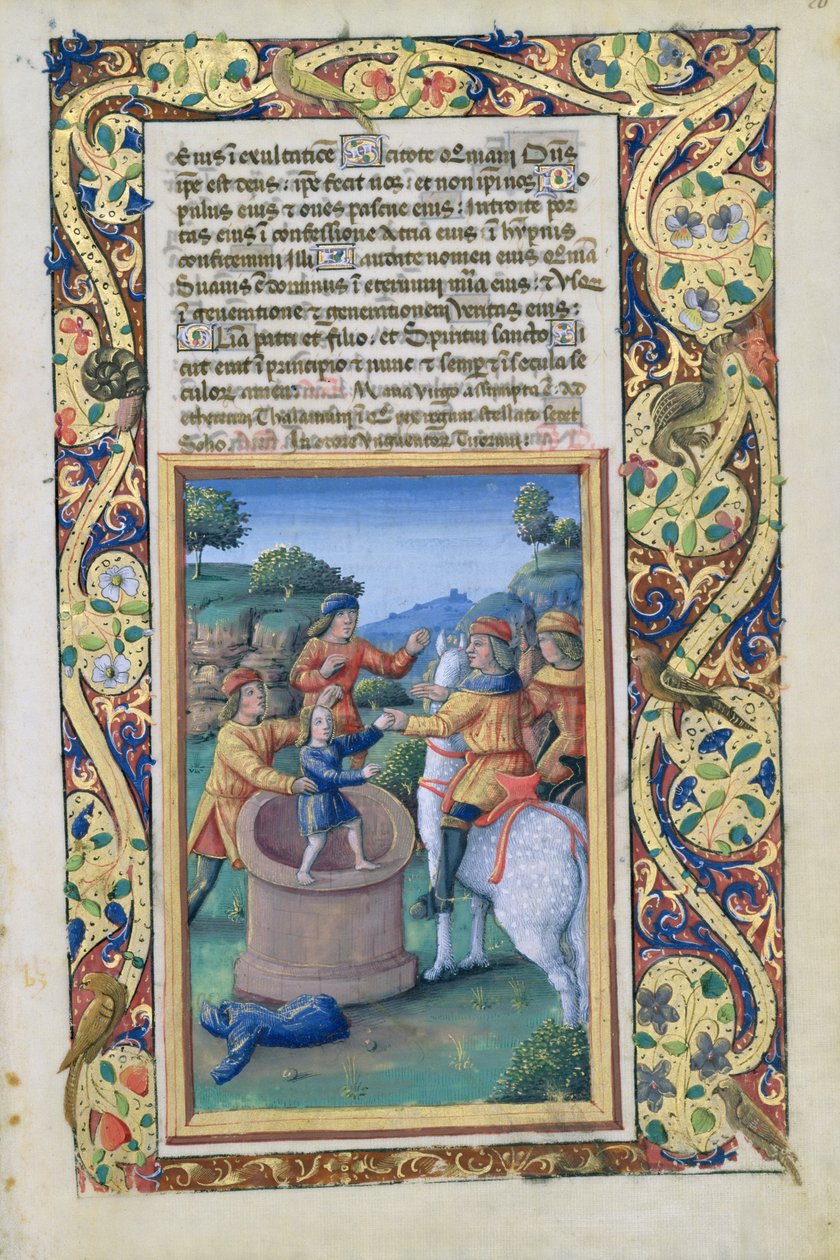 Eius ī exultatiōe Scitote qm̄ani Dn̄s
ip̄e est deus: ip̄e fecit nos: et non ip̄i nos Po
pulus eius ⁊ oues pascue eius: Introite por
tas eius ī confessione Atria eius: ī hȳpnis
confitemini illi Laudate nomen eius qm̄ā
Suauis ē dominus ī eternum mīa eius: ⁊ vsq
ī generatione ⁊ generationem veritas eius:
Glīa patri et filio: et Spiritui sancto Si
cut erat ī principio ⁊ nunc ⁊ semp ⁊ ī secula se
culor amen: Maria virgo assumpta ē Ad
ethereum Thalamū ī rex regum stellato sedet
Solio. In odore vnguentor Tuorum: